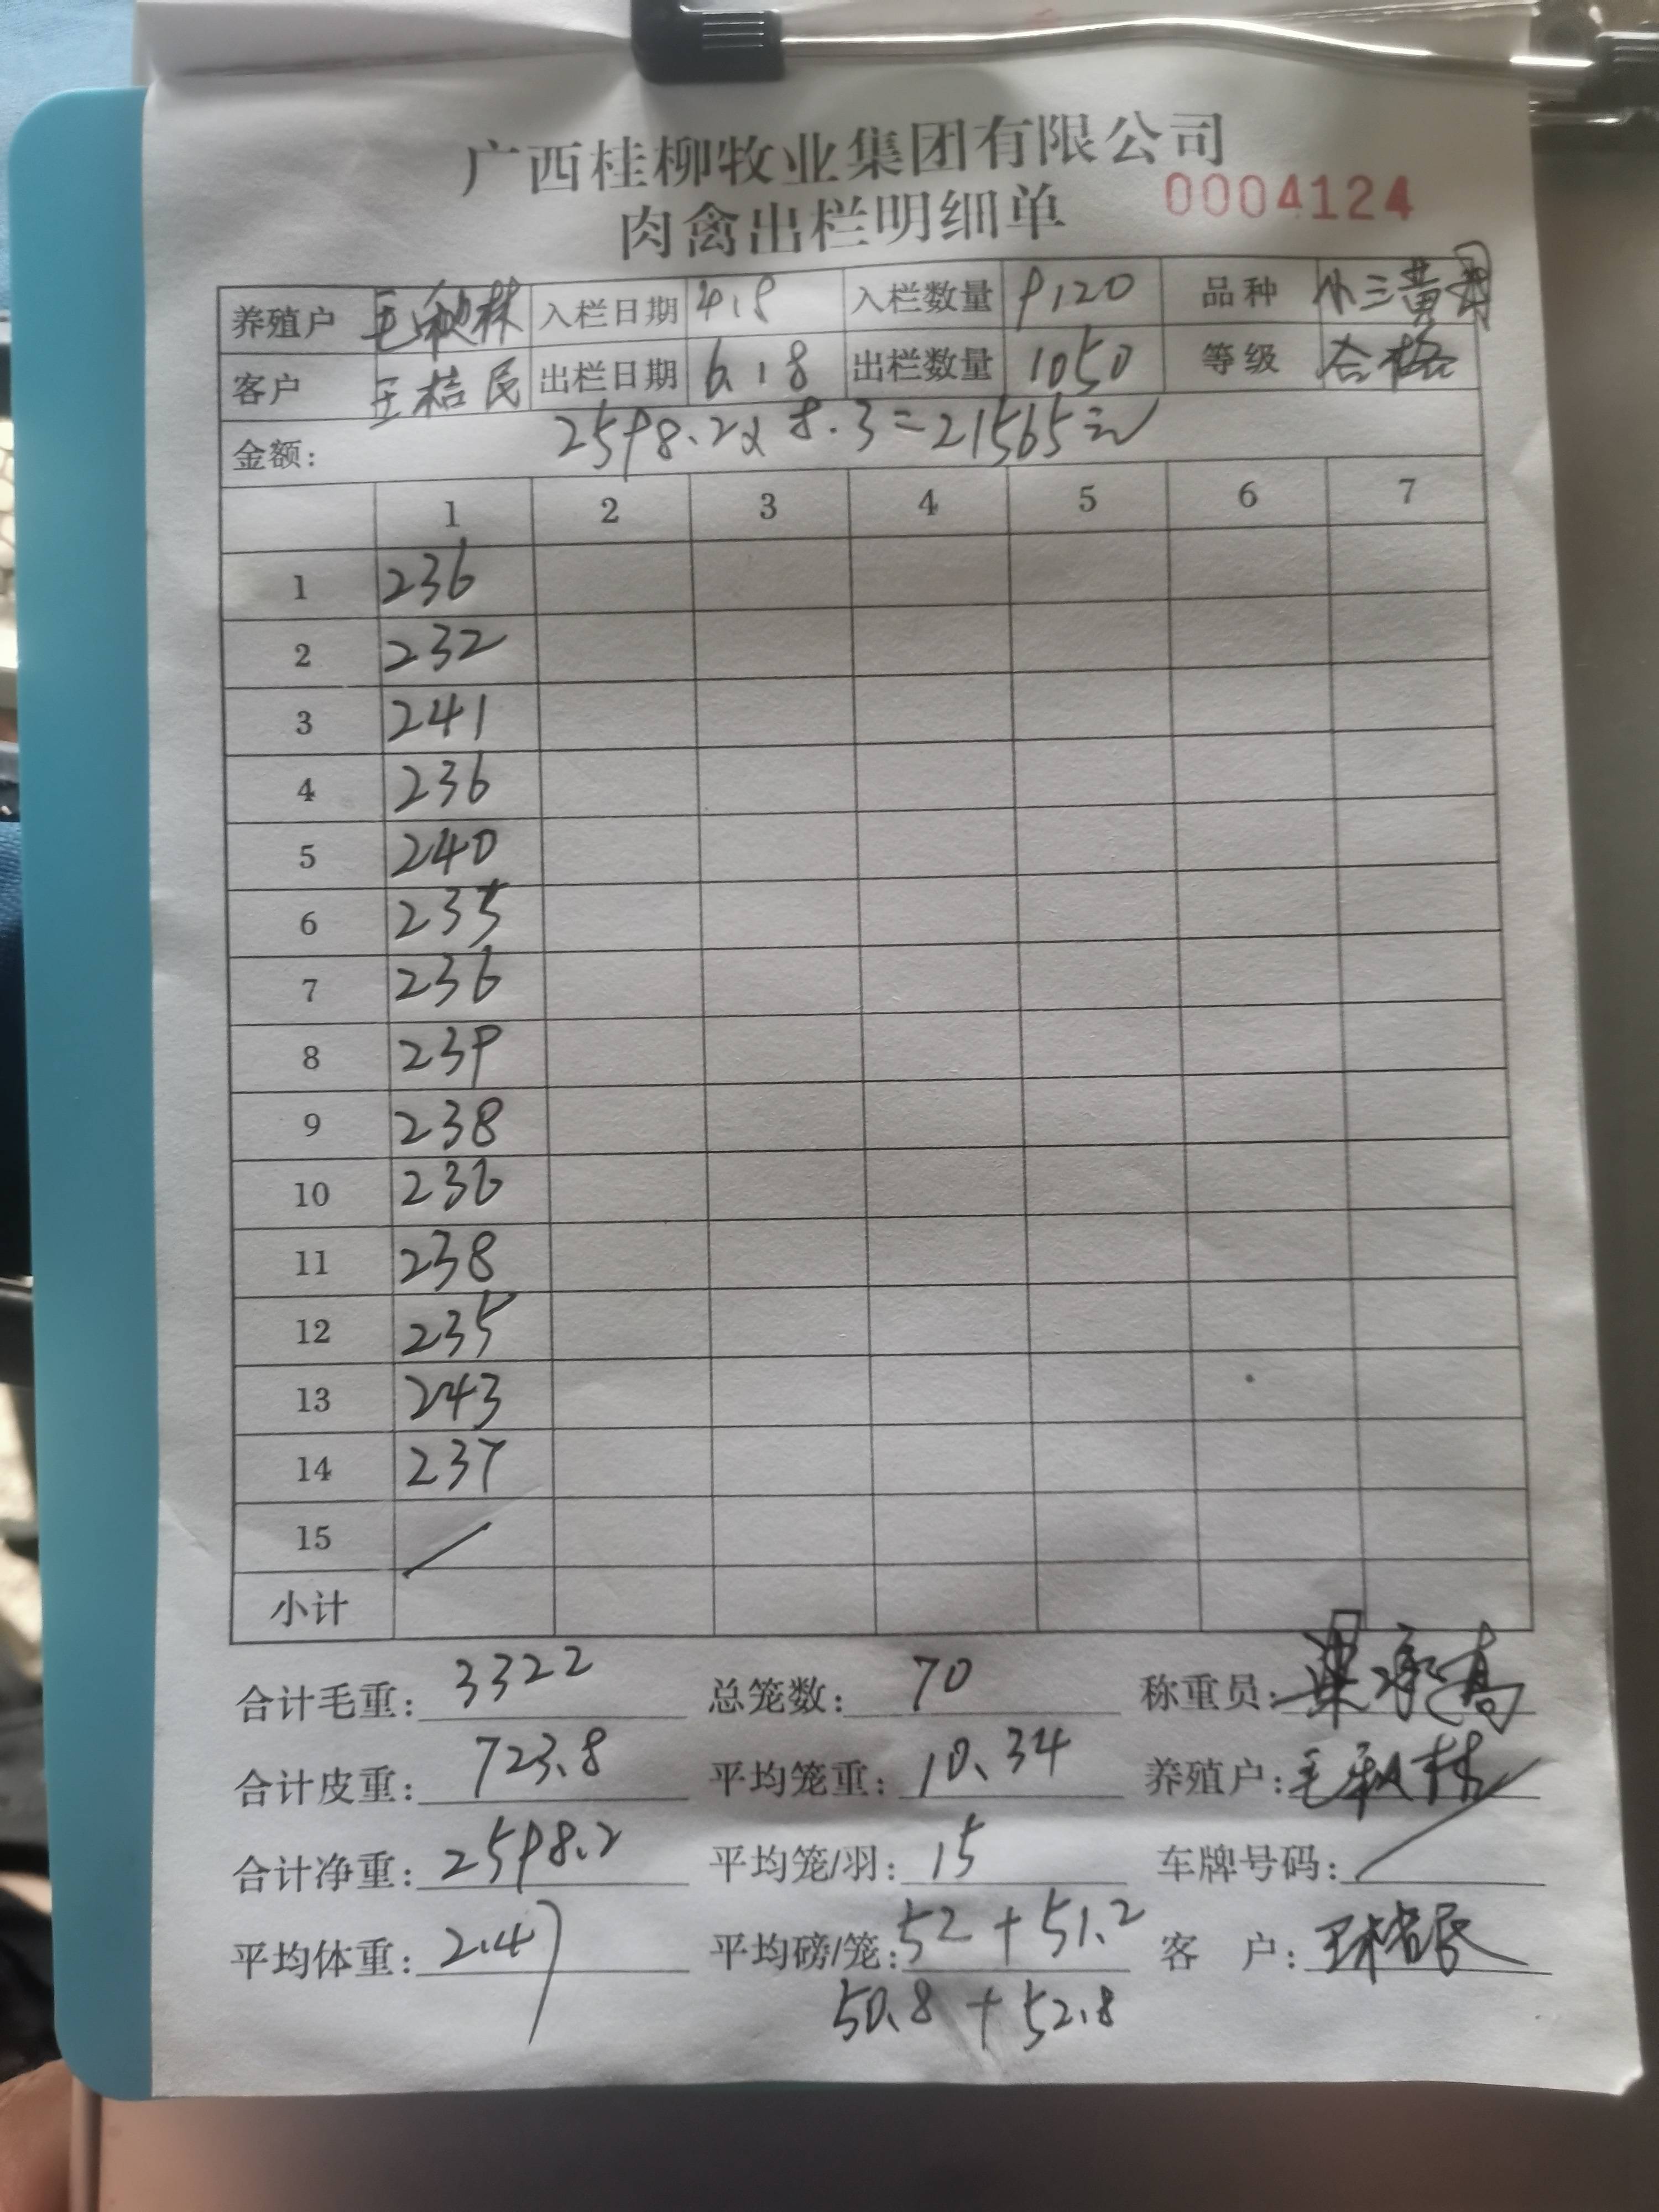 广西桂柳牧业集团有限公司
肉禽出栏明细单 0004124
养殖户 毛秋林 入栏日期 4.9 入栏数量 9120 品种 小三黄
客户 王桔民 出栏日期 6.18 出栏数量 1050 等级 合格
金额: 2598.2x8.3=21565元
1 2 3 4 5 6 7
1 236
2 232
3 241
4 236
5 240
6 235
7 236
8 239
9 238
10 236
11 238
12 235
13 243
14 237
15 /
小计
合计毛重: 3322 总笼数: 70 称重员: 梁承高
合计皮重: 723.8 平均笼重: 10.34 养殖户: 毛秋林
合计净重: 2598.2 平均笼/羽: 15 车牌号码: /
平均体重: 2.47 平均磅/笼: 52+51.2 客 户: 王桔民
50.8+52.8